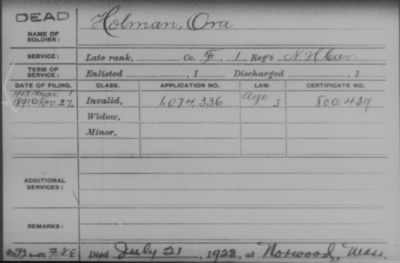 DEAD
NAME OF SOLDIER: Holman, Ora
SERVICE: Late rank, Co. F, 1 Reg't N H Cav
TERM OF SERVICE: Enlisted , 1 Discharged , 1
DATE OF FILING. CLASS. APPLICATION NO. LAW. CERTIFICATE NO.
1890 Nov. 27 Invalid, 1,074,336 Age 800,489
Widow,
Minor,
ADDITIONAL SERVICES:
REMARKS:
Died July 21, 1928, at Norwood, Mass.